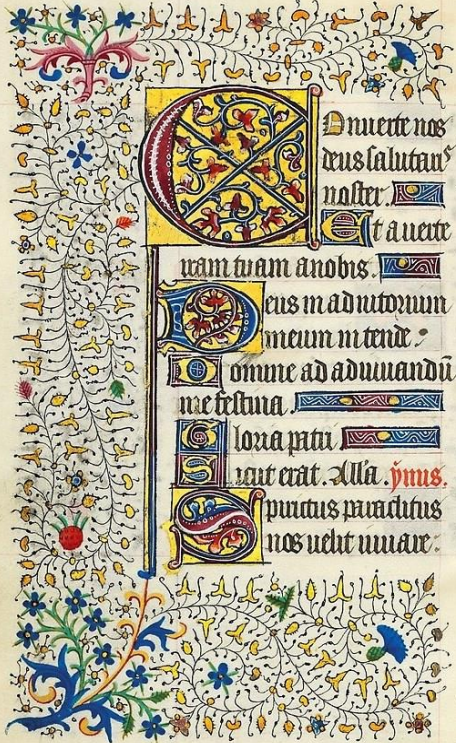 Conuerte nos
deus salutaris
noster.
Et auerte
iram tuam a nobis.
Deus in adiutorium
meum intende.
Domine ad adiuuandū
me festina.
Gloria patri
Sicut erat. Alla. ẏmnus.
Spiritus paraclitus
nos velit iuuare: